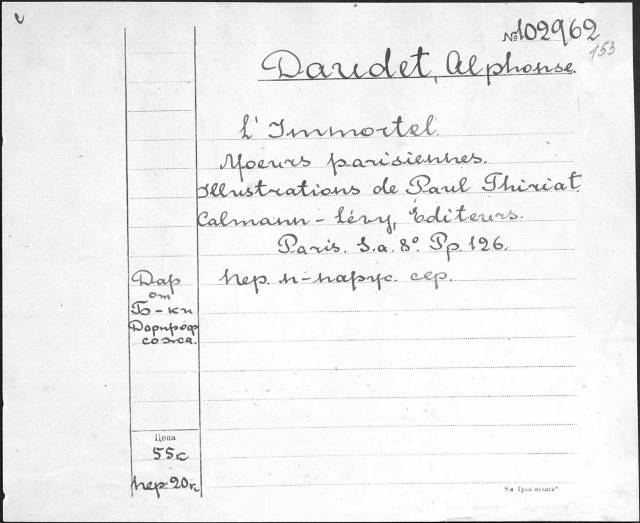 №102962
153
Daudet, Alphonse.
L'Immortel.
Moeurs parisiennes.
Illustrations de Paul Thiriat.
Calmann-Lévy, Éditeurs.
Paris. S.a. 8°. Pp. 126.
Пер. п-парус. сер.
Дар
от
Б-ки
Дорпроф
сожа.
Цена
55к
пер. 20к